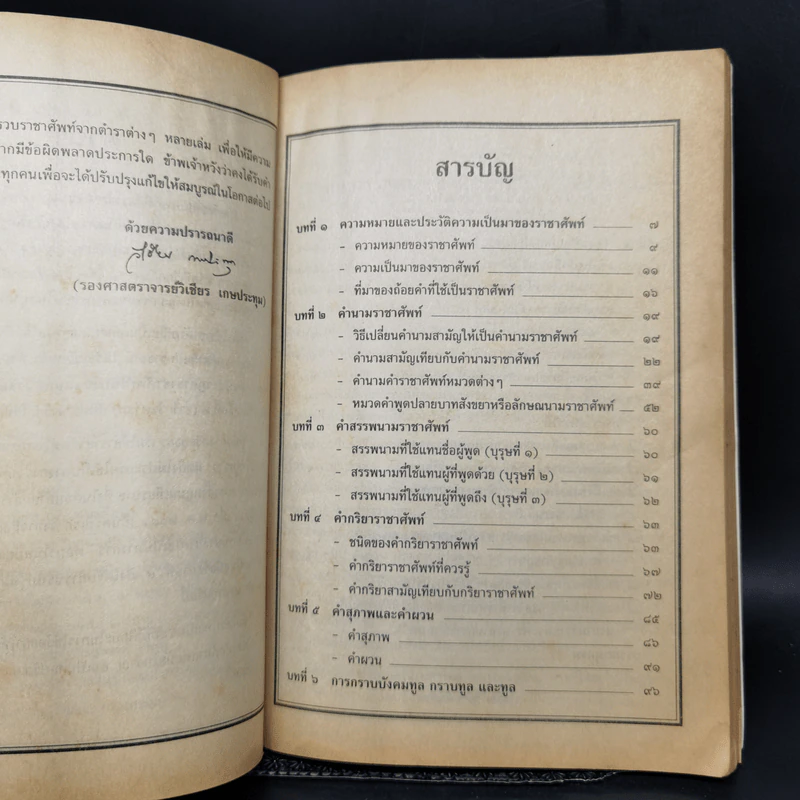 รวบราชาศัพท์จากตำราต่างๆ หลายเล่ม เพื่อให้มีความ
ากมีข้อผิดพลาดประการใด ข้าพเจ้าหวังว่าคงได้รับคำ
ทุกคนเพื่อจะได้ปรับปรุงแก้ไขให้สมบูรณ์ในโอกาสต่อไป
ด้วยความปรารถนาดี
(รองศาสตราจารย์วิเชียร เกษประทุม)
สารบัญ
บทที่ ๑ ความหมายและประวัติความเป็นมาของราชาศัพท์ ๗
- ความหมายของราชาศัพท์ ๙
- ความเป็นมาของราชาศัพท์ ๑๑
- ที่มาของถ้อยคำที่ใช้เป็นราชาศัพท์ ๑๖
บทที่ ๒ คำนามราชาศัพท์ ๑๙
- วิธีเปลี่ยนคำนามสามัญให้เป็นคำนามราชาศัพท์ ๑๙
- คำนามสามัญเทียบกับคำนามราชาศัพท์ ๒๒
- คำนามคำราชาศัพท์หมวดต่างๆ ๓๙
- หมวดคำพูดปลายบาทสังขยาหรือลักษณนามราชาศัพท์ ๕๒
บทที่ ๓ คำสรรพนามราชาศัพท์ ๖๐
- สรรพนามที่ใช้แทนชื่อผู้พูด (บุรุษที่ ๑) ๖๐
- สรรพนามที่ใช้แทนผู้ที่พูดด้วย (บุรุษที่ ๒) ๖๑
- สรรพนามที่ใช้แทนผู้ที่พูดถึง (บุรุษที่ ๓) ๖๒
บทที่ ๔ คำกริยาราชาศัพท์ ๖๓
- ชนิดของคำกริยาราชาศัพท์ ๖๓
- คำกริยาราชาศัพท์ที่ควรรู้ ๖๗
- คำกริยาสามัญเทียบกับกริยาราชาศัพท์ ๗๒
บทที่ ๕ คำสุภาพและคำผวน ๘๕
- คำสุภาพ ๘๖
- คำผวน ๙๑
บทที่ ๖ การกราบบังคมทูล กราบทูล และทูล ๙๖